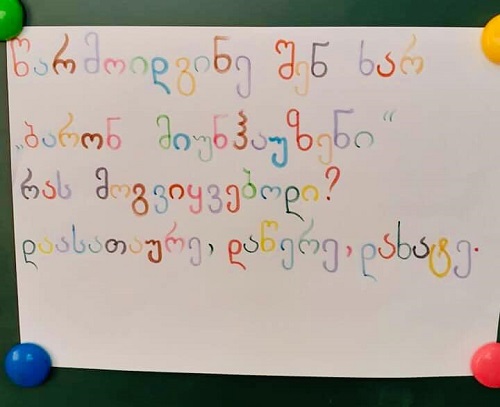 წარმოიდგინე შენ ხარ
„ბარონ მიუნჰაუზენი“
რას მოგვიყვებოდი?
დაასათაურე, დაწერე, დახატე.